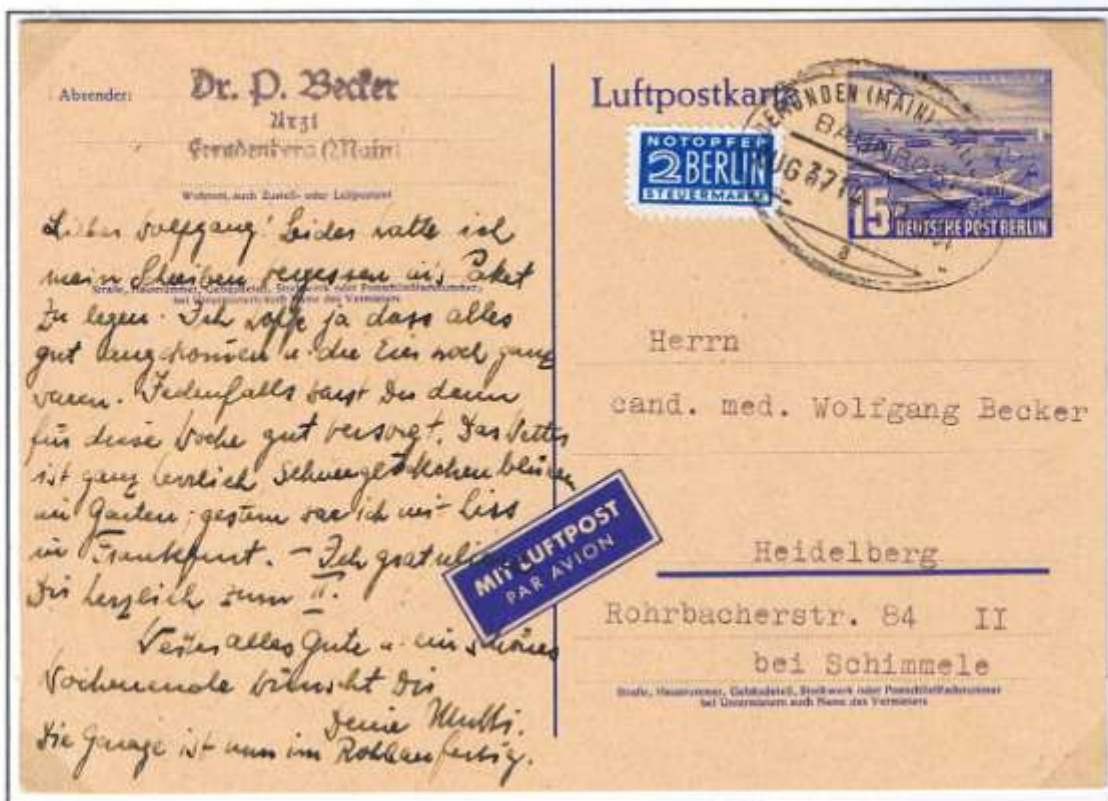 Absender:
Dr. P. Becker
Arzt
Freudenberg (Main)
Wohnort, auch Zustell- oder Leitpostamt
Straße, Hausnummer, Gebäudeteil, Stockwerk oder Postschließfachnummer,
bei Untermietern auch Name des Vermieters
Lieber Wolfgang! Leider hatte ich
mein Schreiben vergessen in's Paket
zu legen. Ich hoffe ja dass alles
gut angekommen u. die Eier noch ganz
waren. Jedenfalls warst Du denn
für diese Woche gut versorgt. Das Wetter
ist ganz herrlich Schneeglökchen blühen
im Garten, gestern war ich mit Liss
in Frankfurt. – Ich gratuliere
Dir herzlich zum II.
Weiter alles Gute u. ein schönes
Wochenende wünscht Dir
Deine Mutti.
Die Garage ist nun im Rohbau fertig.
Luftpostkarte
NOTOPFER
2 BERLIN
STEUERMARKE
GEMÜNDEN (MAIN)
BAHNPOST
ZUG
15 DEUTSCHE POST BERLIN
MIT LUFTPOST
PAR AVION
Herrn
cand. med. Wolfgang Becker
Heidelberg
Rohrbacherstr. 84 II
bei Schimmele
Straße, Hausnummer, Gebäudeteil, Stockwerk oder Postschließfachnummer
bei Untermietern auch Name des Vermieters